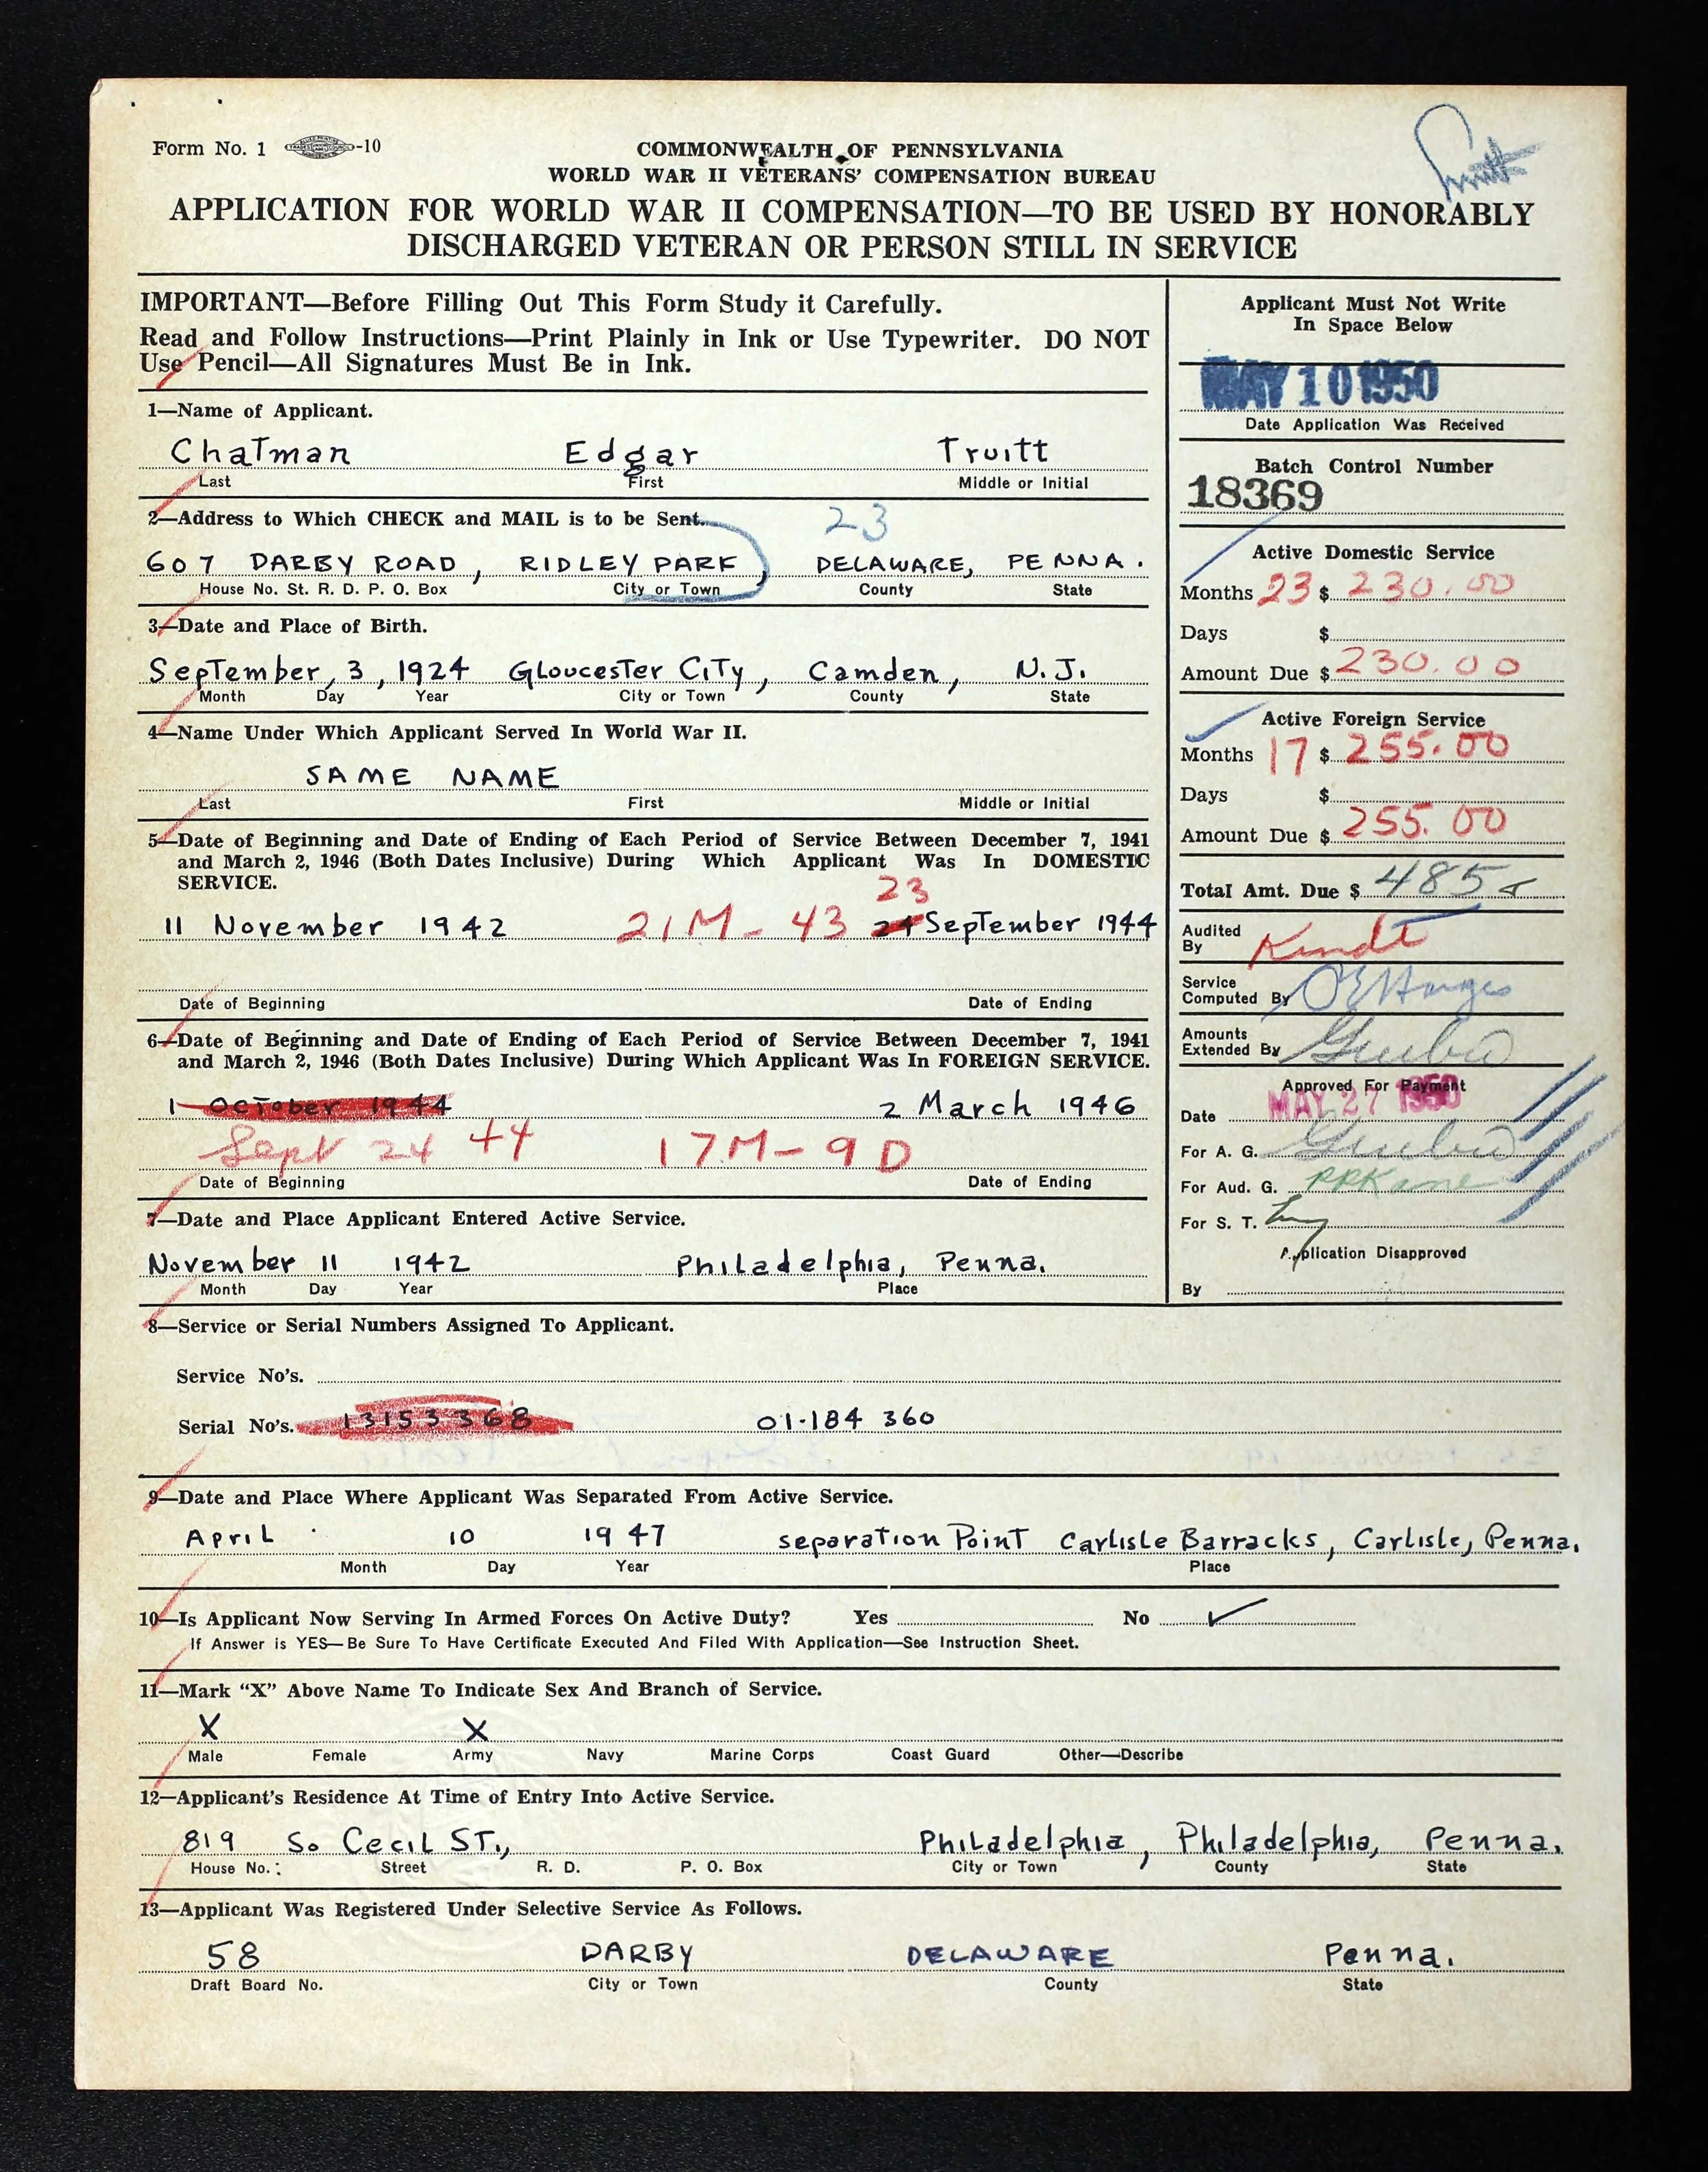 Form No. 1 -10
COMMONWEALTH OF PENNSYLVANIA
WORLD WAR II VETERANS' COMPENSATION BUREAU
APPLICATION FOR WORLD WAR II COMPENSATION—TO BE USED BY HONORABLY
DISCHARGED VETERAN OR PERSON STILL IN SERVICE
IMPORTANT—Before Filling Out This Form Study it Carefully.
Read and Follow Instructions—Print Plainly in Ink or Use Typewriter. DO NOT
Use Pencil—All Signatures Must Be in Ink.
1—Name of Applicant.
Chatman Edgar Truitt
Last First Middle or Initial
2—Address to Which CHECK and MAIL is to be Sent. 23
607 DARBY ROAD, RIDLEY PARK, DELAWARE, PENNA.
House No. St. R. D. P. O. Box City or Town County State
3—Date and Place of Birth.
September, 3, 1924 Gloucester City, Camden, N.J.
Month Day Year City or Town County State
4—Name Under Which Applicant Served In World War II.
SAME NAME
Last First Middle or Initial
5—Date of Beginning and Date of Ending of Each Period of Service Between December 7, 1941
and March 2, 1946 (Both Dates Inclusive) During Which Applicant Was In DOMESTIC
SERVICE.
23
11 November 1942 21M - 43 24 September 1944
Date of Beginning Date of Ending
6—Date of Beginning and Date of Ending of Each Period of Service Between December 7, 1941
and March 2, 1946 (Both Dates Inclusive) During Which Applicant Was In FOREIGN SERVICE.
1 October 1944 2 March 1946
Sept 24 44 17M - 9D
Date of Beginning Date of Ending
7—Date and Place Applicant Entered Active Service.
November 11 1942 Philadelphia, Penna.
Month Day Year Place
Applicant Must Not Write
In Space Below
MAY 10 1950
Date Application Was Received
Batch Control Number
18369
Active Domestic Service
Months 23 $ 230.00
Days $
Amount Due $ 230.00
Active Foreign Service
Months 17 $ 255.00
Days $
Amount Due $ 255.00
Total Amt. Due $ 485
Audited
By
Service
Computed By
Amounts
Extended By
Approved For Payment
Date MAY 27 1950
For A. G.
For Aud. G. PRKane
For S. T.
Application Disapproved
By
8—Service or Serial Numbers Assigned To Applicant.
Service No's.
Serial No's. 13153368 01-184 360
9—Date and Place Where Applicant Was Separated From Active Service.
April 10 1947 separation Point Carlisle Barracks, Carlisle, Penna.
Month Day Year Place
10—Is Applicant Now Serving In Armed Forces On Active Duty? Yes No ✓
If Answer is YES—Be Sure To Have Certificate Executed And Filed With Application—See Instruction Sheet.
11—Mark “X” Above Name To Indicate Sex And Branch of Service.
X X
Male Female Army Navy Marine Corps Coast Guard Other—Describe
12—Applicant's Residence At Time of Entry Into Active Service.
819 So Cecil ST., Philadelphia, Philadelphia, Penna.
House No. Street R. D. P. O. Box City or Town County State
13—Applicant Was Registered Under Selective Service As Follows.
58 DARBY DELAWARE Penna.
Draft Board No. City or Town County State